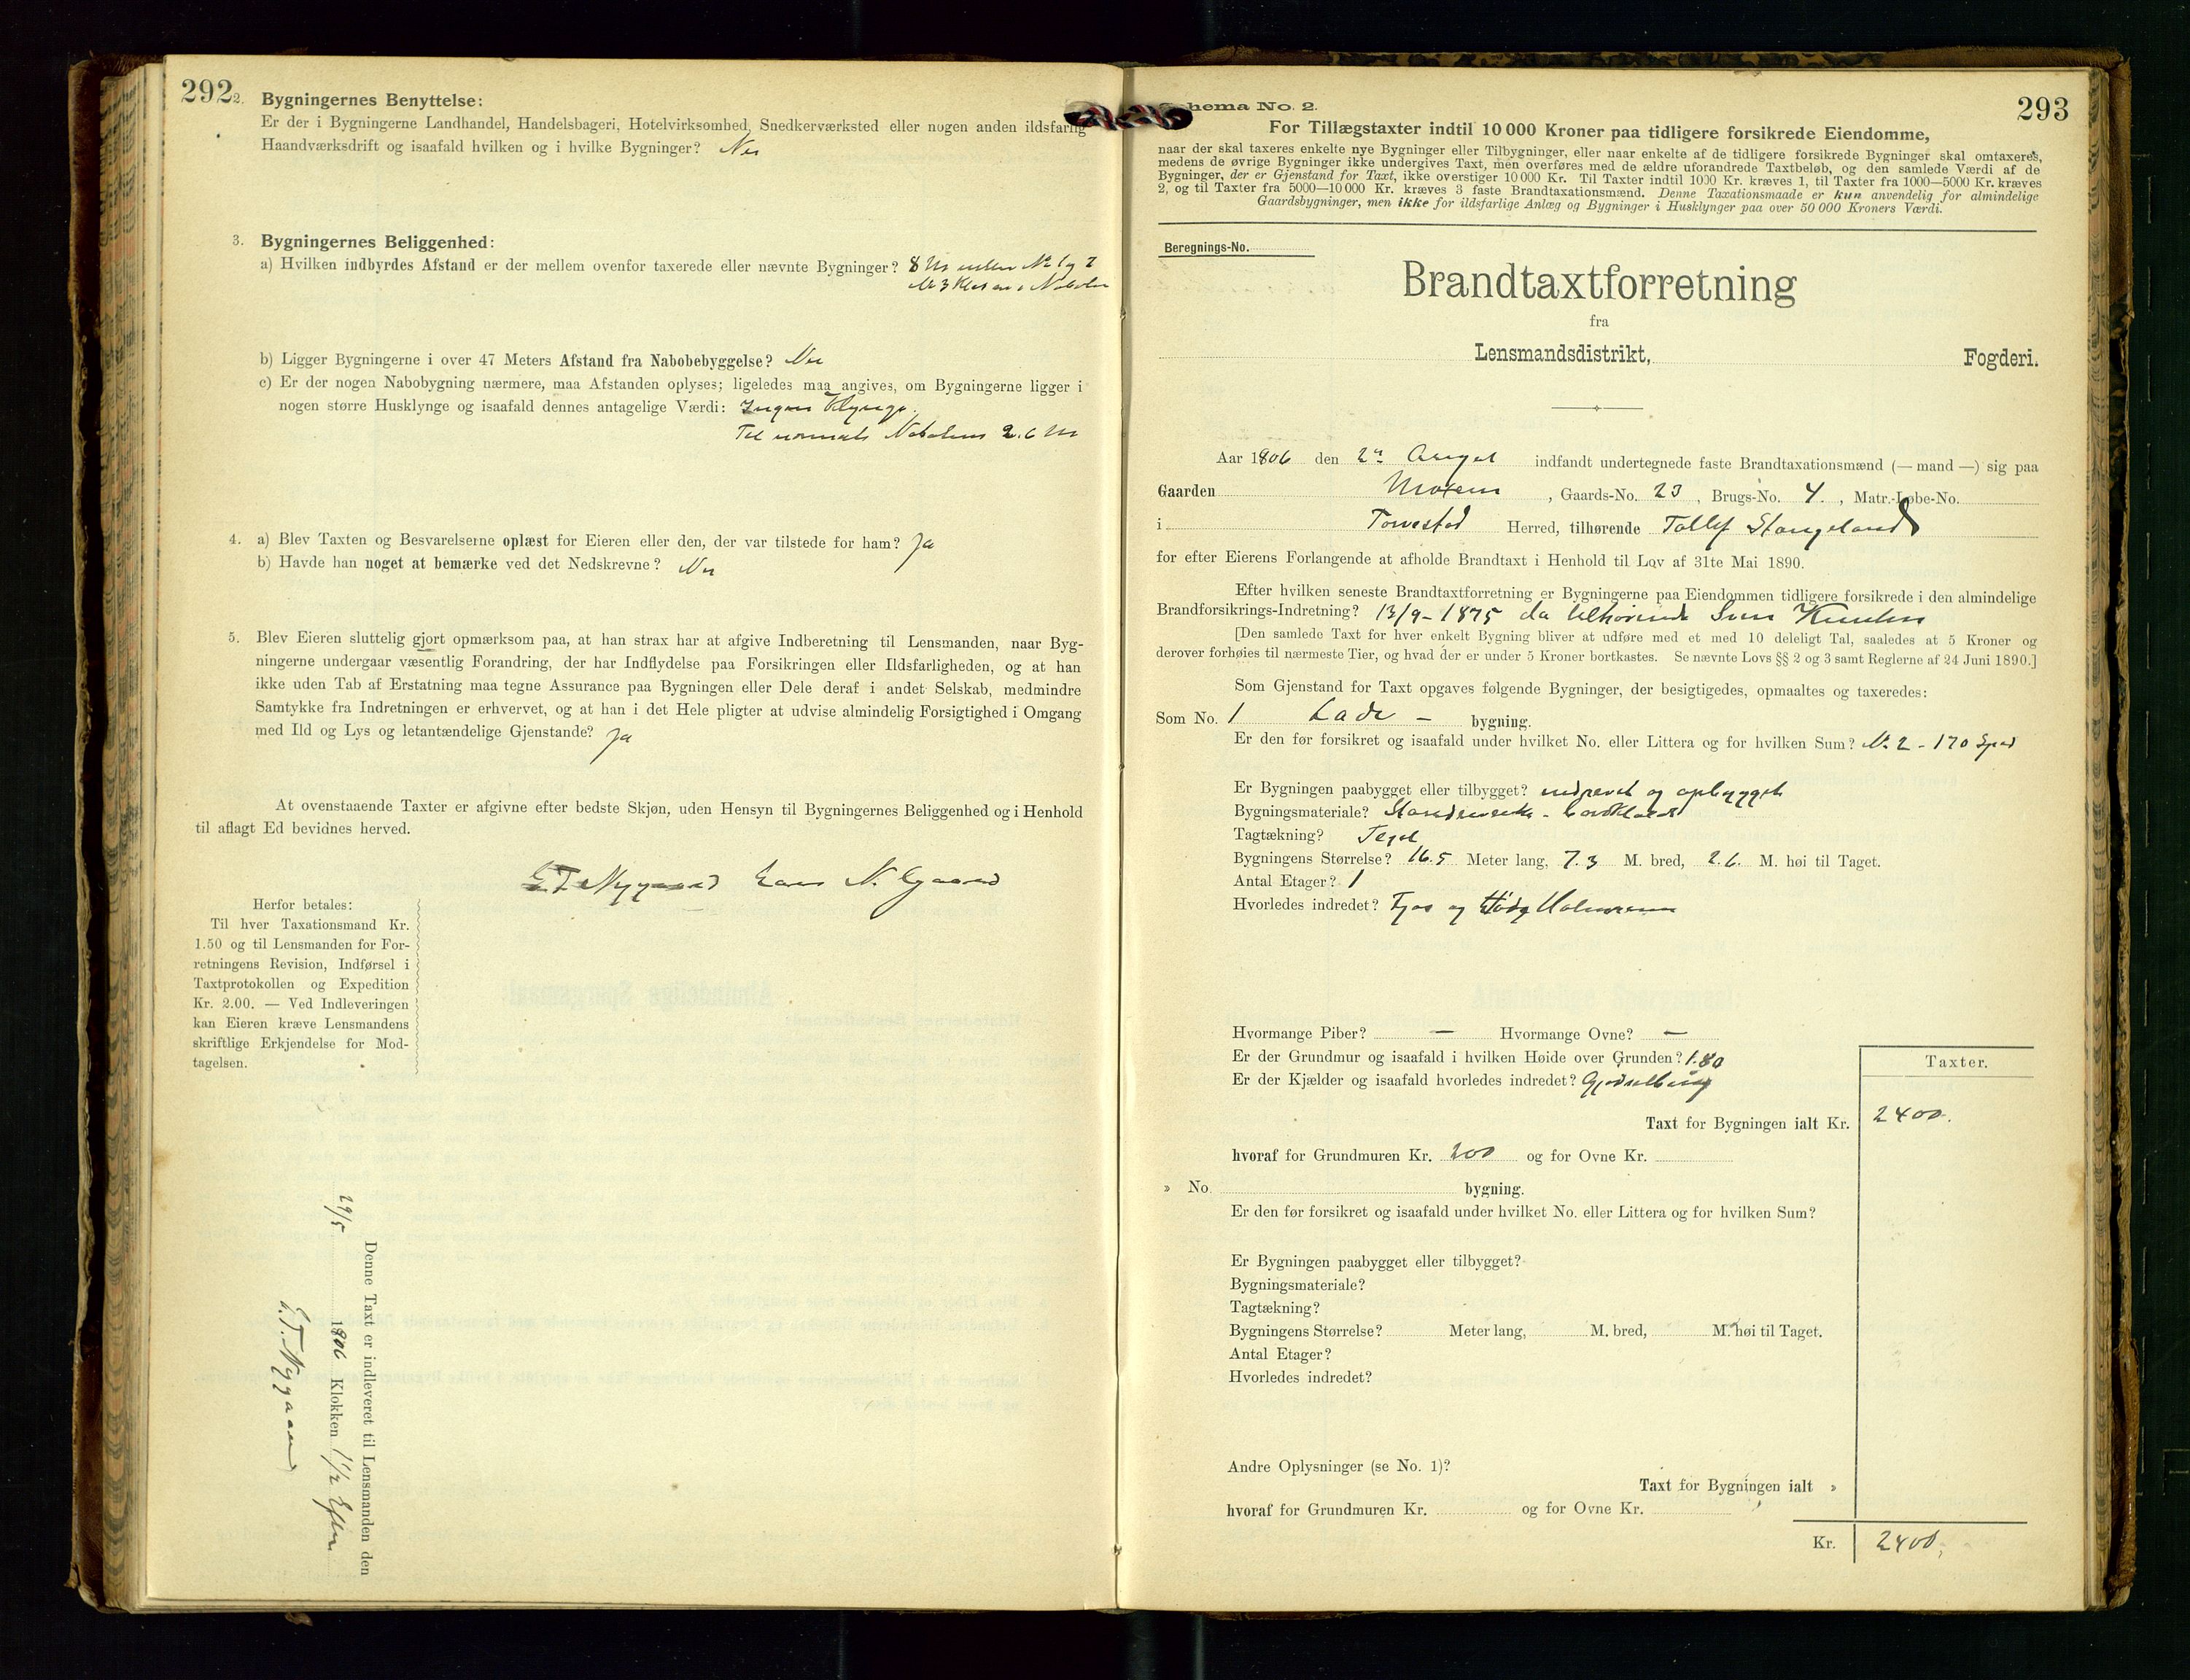 292
2. Bygningernes Benyttelse:
Er der i Bygningerne Landhandel, Handelsbageri, Hotelvirksomhed, Snedkerværksted eller nogen anden ildsfarlig
Haandværksdrift og isaafald hvilken og i hvilke Bygninger? Nei
3. Bygningernes Beliggenhed:
a) Hvilken indbyrdes Afstand er der mellem ovenfor taxerede eller nævnte Bygninger? 8 M mellem No 1 og 2
No 3
b) Ligger Bygningerne i over 47 Meters Afstand fra Nabobebyggelse? Nei
c) Er der nogen Nabobygning nærmere, maa Afstanden oplyses; ligeledes maa angives, om Bygningerne ligger i
nogen større Husklynge og isaafald dennes antagelige Værdi: Ingen Klynge.
Til nærmeste Nabohus 2.6 M
4. a) Blev Taxten og Besvarelserne oplæst for Eieren eller den, der var tilstede for ham? Ja
b) Havde han noget at bemærke ved det Nedskrevne? Nei
5. Blev Eieren sluttelig gjort opmærksom paa, at han strax har at afgive Indberetning til Lensmanden, naar Byg-
ningerne undergaar væsentlig Forandring, der har Indflydelse paa Forsikringen eller Ildsfarligheden, og at han
ikke uden Tab af Erstatning maa tegne Assurance paa Bygningen eller Dele deraf i andet Selskab, medmindre
Samtykke fra Indretningen er erhvervet, og at han i det Hele pligter at udvise almindelig Forsigtighed i Omgang
med Ild og Lys og letantændelige Gjenstande? Ja
At ovenstaaende Taxter er afgivne efter bedste Skjøn, uden Hensyn til Bygningernes Beliggenhed og i Henhold
til aflagt Ed bevidnes herved.
E T Nyggaard Lars N. Ogaard
Herfor betales:
Til hver Taxationsmand Kr.
1.50 og til Lensmanden for For-
retningens Revision, Indførsel i
Taxtprotokollen og Expedition
Kr. 2.00. — Ved Indleveringen
kan Eieren kræve Lensmandens
skriftlige Erkjendelse for Mod-
tagelsen.
Denne Taxt er indleveret til Lensmanden den
29/5 1906 Klokken 1 1/2 Efter
E. T. Nyggaard
293
hema No. 2.
For Tillægstaxter indtil 10 000 Kroner paa tidligere forsikrede Eiendomme,
naar der skal taxeres enkelte nye Bygninger eller Tilbygninger, eller naar enkelte af de tidligere forsikrede Bygninger skal omtaxeres,
medens de øvrige Bygninger ikke undergives Taxt, men overføres med de ældre uforandrede Taxtbeløb, og den samlede Værdi af de
Bygninger, der er Gjenstand for Taxt, ikke overstiger 10 000 Kr. Til Taxter indtil 1000 Kr. kræves 1, til Taxter fra 1000—5000 Kr. kræves
2, og til Taxter fra 5000—10 000 Kr. kræves 3 faste Brandtaxationsmænd. Denne Taxationsmaade er kun anvendelig for almindelige
Gaardsbygninger, men ikke for ildsfarlige Anlæg og Bygninger i Husklynger paa over 50 000 Kroners Værdi.
Beregnings-No.
Brandtaxtforretning
fra
Lensmandsdistrikt, Fogderi.
Aar 1906 den 2n August indfandt undertegnede faste Brandtaxationsmænd (— mand —) sig paa
Gaarden , Gaards-No. 23 , Brugs-No. 4. , Matr.-Løbe-No.
i Torvestad Herred, tilhørende Tollef Stangeland
for efter Eierens Forlangende at afholde Brandtaxt i Henhold til Lov af 31te Mai 1890.
Efter hvilken seneste Brandtaxtforretning er Bygningerne paa Eiendommen tidligere forsikrede i den almindelige
Brandforsikrings-Indretning? 13/9 - 1875 da tilhørende Sven
[Den samlede Taxt for hver enkelt Bygning bliver at udføre med et med 10 deleligt Tal, saaledes at 5 Kroner og
derover forhøies til nærmeste Tier, og hvad der er under 5 Kroner bortkastes. Se nævnte Lovs §§ 2 og 3 samt Reglerne af 24 Juni 1890.]
Som Gjenstand for Taxt opgaves følgende Bygninger, der besigtigedes, opmaaltes og taxeredes:
Som No. 1 Lade - bygning.
Er den før forsikret og isaafald under hvilket No. eller Littera og for hvilken Sum? No 2 - 170 Spd
Er Bygningen paabygget eller tilbygget? nedrevet og opbygget
Bygningsmateriale? Standerverk - bordklædt
Tagtækning? Tegl
Bygningens Størrelse? 16.5 Meter lang, 7.3 M. bred, 2.6. M. høi til Taget.
Antal Etager? 1
Hvorledes indredet? Fjøs og
Hvormange Piber? — Hvormange Ovne? —
Er der Grundmur og isaafald i hvilken Høide over Grunden? 1.80
Er der Kjælder og isaafald hvorledes indredet? Gjødselbing
Taxter.
Taxt for Bygningen ialt Kr. 2400.
hvoraf for Grundmuren Kr. 200 og for Ovne Kr.
» No. bygning.
Er den før forsikret og isaafald under hvilket No. eller Littera og for hvilken Sum?
Er Bygningen paabygget eller tilbygget?
Bygningsmateriale?
Tagtækning?
Bygningens Størrelse? Meter lang, M. bred, M. høi til Taget.
Antal Etager?
Hvorledes indredet?
Andre Oplysninger (se No. 1)?
Taxt for Bygningen ialt »
hvoraf for Grundmuren Kr. og for Ovne Kr.
Kr. 2400,